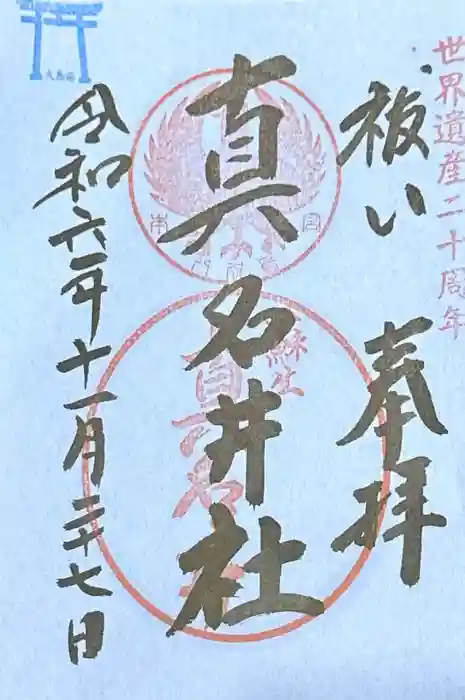 世界遺産二十周年
祓い 奉拝
真名井社
蘇生
真名井社
令和六年十一月二十七日